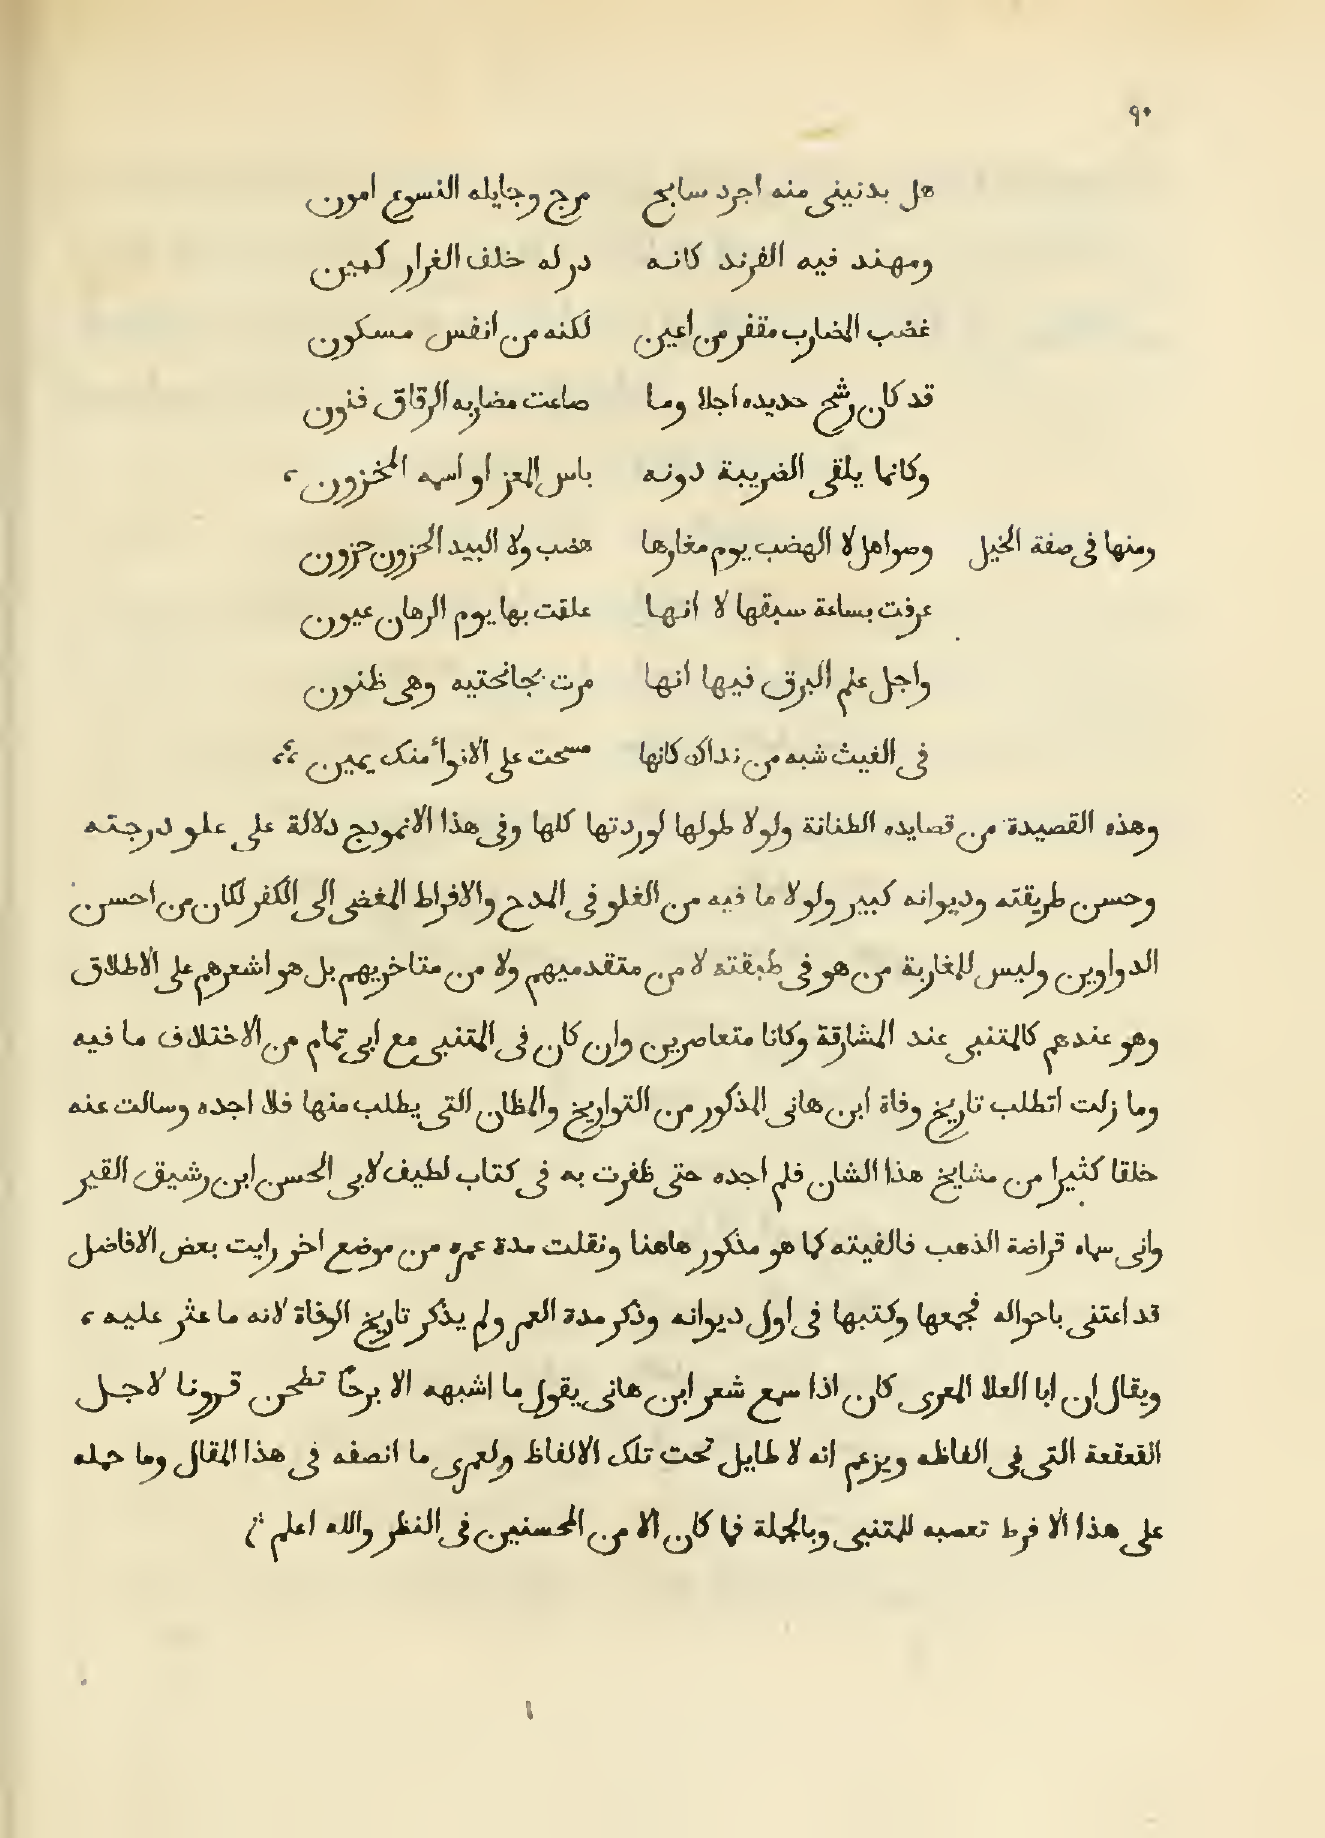 ٩٠
هل بدنيني منه اجرد سابح مرج وجايله النسوع امون
ومهند فيه الفرند كانه در له خلف الغرار كمين
غضب المضارب مقفر من اعين لكنه من انفس مسكون
قد كان رشح حديده اجلا وما صاعت مضاربه الرقاق فنون
وكانما يلقى الضريبة دونه باس المعز او اسمه المخزون
ومنها في صفة الخيل وصواهل لا الهضب يوم مغارها هضب ولا البيد الحزون حزون
عرفت بساعة سبقها لا انها علقت بها يوم الرهان عيون
واجل علم البرق فيها انها مرت بجانحتيه وهى ظنون
فى الغيث شبه من نداك كانها مسحت على الانوأ منك يمين
وهذه القصيدة من قصايده الطنانة ولولا طولها لوردتها كلها وفى هذا الانموذج دلالة على علو درجته
وحسن طريقته وديوانه كبير ولولا ما فيه من الغلو فى المدح والافراط المغضى الى الكفر لكان من احسن
الدواوين وليس للمغاربة من هو فى طبقته لا من متقدميهم ولا من متاخريهم بل هو اشعرهم على الاطلاق
وهو عندهم كالمتنبى عند المشارقة وكانا متعاصرين وان كان فى المتنبى مع ابى تمام من الاختلاف ما فيه
وما زلت اتطلب تاريخ وفاة ابن هانى المذكور من التواريخ والمظان التى يطلب منها فلا اجده وسالت عنه
خلقا كثيرا من مشايخ هذا الشان فلم اجده حتى ظفرت به فى كتاب لطيف لابى الحسن ابن رشيق القير
وانى سماه قراضة الذهب فالفيته كما هو مذكور هاهنا ونقلت مدة عمره من موضع اخر رايت بعض الافاضل
قد اعتنى باحواله فجمعها وكتبها فى اول ديوانه وذكر مدة العمر ولم يذكر تاريخ الوفاة لانه ما عثر عليه
ويقال ان ابا العلا المعرى كان اذا سمع شعر ابن هانى يقول ما اشبهه الا برحًا تطحن قرونا لاجل
القعقعة التى فى الفاظه ويزعم انه لا طايل تحت تلك الالفاظ ولعمرى ما انصفه فى هذا المقال وما حمله
على هذا الا فرط تعصبه للمتنبى وبالجملة فما كان الا من المحسنين فى النظر والله اعلم